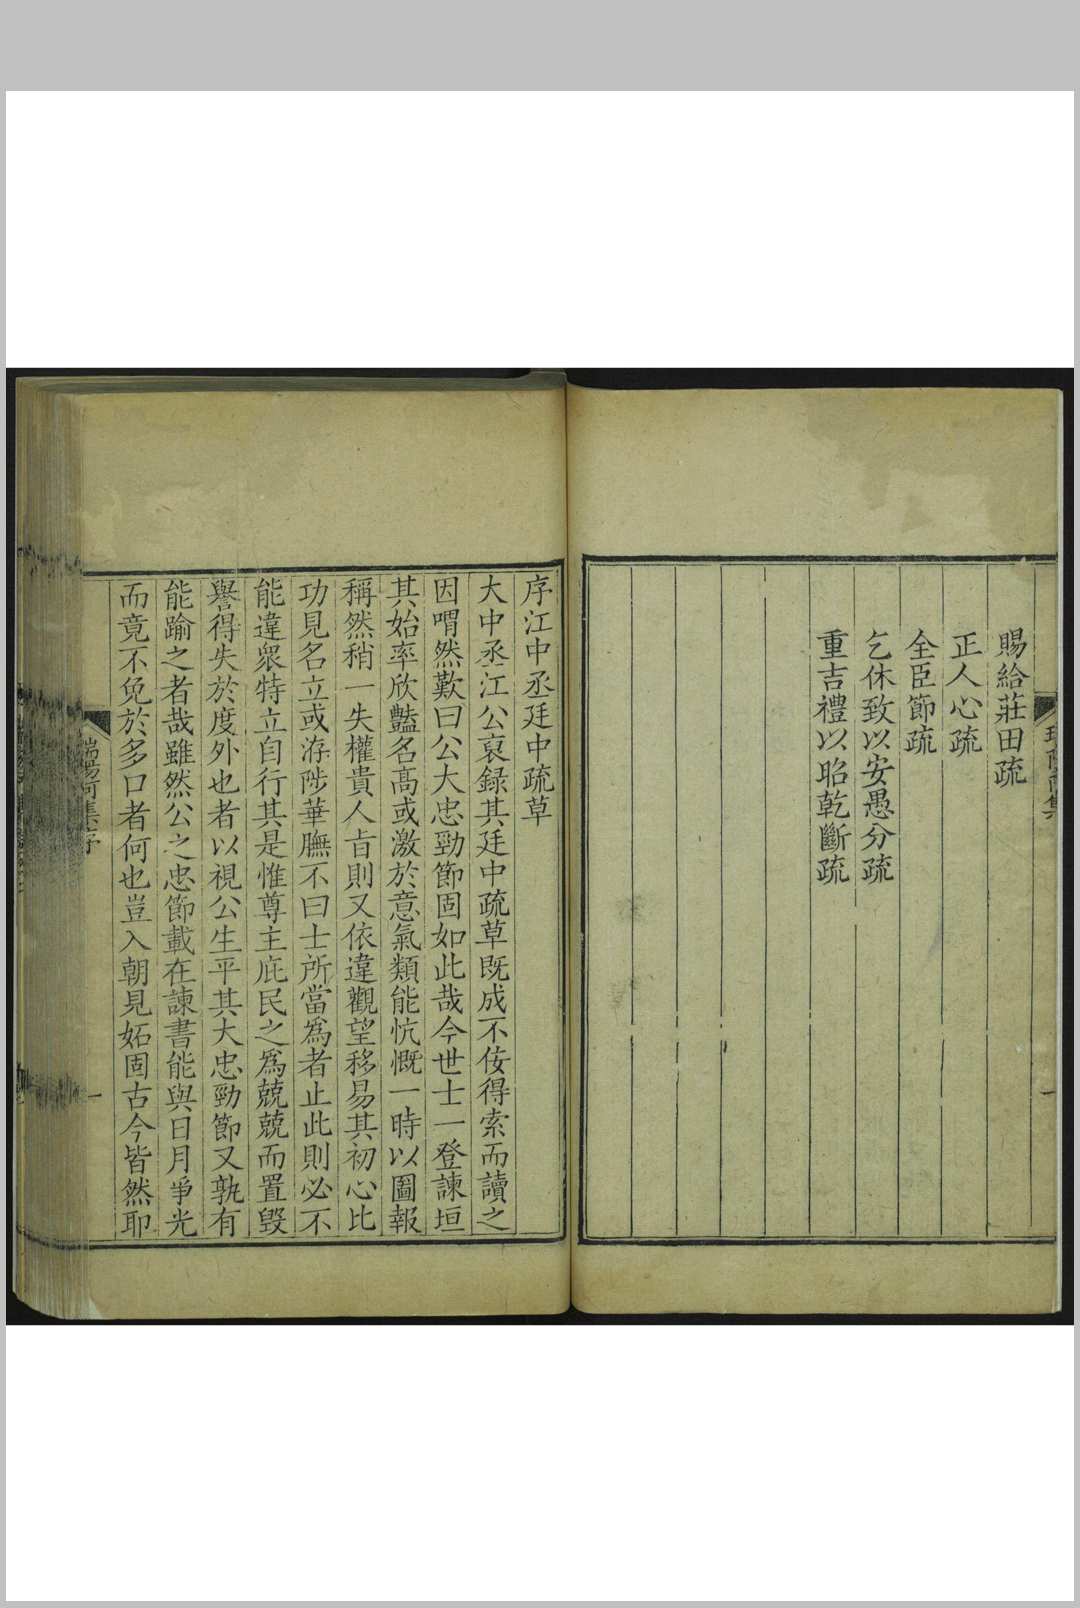 賜給莊田疏
正人心疏
全臣節疏
乞休致以安愚分疏
重吉禮以昭乾斷疏
序江中丞廷中疏草
大中丞江公裒錄其廷中疏草既成不佞得索而讀之
因喟然歎曰公大忠勁節固如此哉今世士一登諫垣
其始率欣豔名高或激於意氣類能忼慨一時以圖報
稱然稍一失權貴人㫖則又依違觀望移易其初心比
功見名立或洊陟華膴不曰士所當爲者止此則必不
能違衆特立自行其是惟尊主庇民之爲兢兢而置毀
譽得失於度外也者以視公生平其大忠勁節又孰有
能踰之者哉雖然公之忠節載在諫書能與日月爭光
而竟不免於多口者何也豈入朝見妬固古今皆然耶
瑞陽阿集序
一